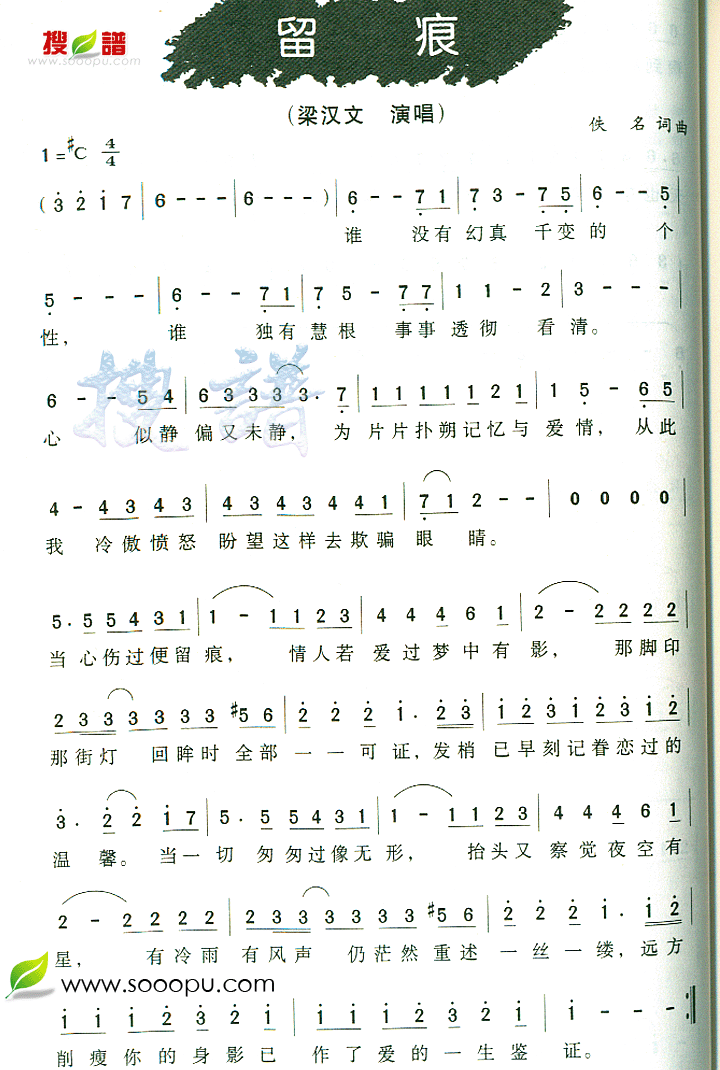 搜譜
www.sooopu.com
留 痕
(梁汉文 演唱)
佚 名 词曲
1=#C 4/4
(3 2 1 7 | 6 - - - | 6 - - - ) | 6 - - 7 1 | 7 3 - 7 5 | 6 - - 5 |
谁 没有幻真 千变的 个
5 - - - | 6 - - 7 1 | 7 5 - 7 7 | 1 1 - 2 | 3 - - - |
性, 谁 独有慧根 事事透彻 看清。
搜譜
6 - - 5 4 | 6 3 3 3 3 3 · 7 | 1 1 1 1 1 2 1 | 1 5 - 6 5 |
心 似静 偏又未静, 为 片片扑朔记忆与 爱情, 从此
4 - 4 3 4 3 | 4 3 4 3 4 4 1 | 7 1 2 - - | 0 0 0 0 |
我 冷傲愤怒 盼望这样去欺骗 眼 睛。
5 · 5 5 4 3 1 | 1 - 1 1 2 3 | 4 4 4 6 1 | 2 - 2 2 2 2 |
当 心伤过便留痕, 情人若 爱过梦中有影, 那脚印
2 3 3 3 3 3 3 #5 6 | 2 2 2 1 · 2 3 | 2 3 1 2 3 1 2 |
那街灯 回眸时 全部 一一可证,发梢 已早刻记眷恋过的
3 · 2 2 1 7 | 5 · 5 5 4 3 1 | 1 - 1 1 2 3 | 4 4 4 6 1 |
温 馨。 当一切 匆匆过像无形, 抬头又 察觉夜空有
2 - 2 2 2 2 | 2 3 3 3 3 3 3 #5 6 | 2 2 2 1 · 1 2 |
星, 有冷雨 有风声 仍茫然重述 一丝一缕,远方
www.sooopu.com
1 1 1 1 2 3 2 1 | 1 1 1 1 2 3 2 1 | 1 - - - :||
削瘦你的身影已 作了爱的一生鉴 证。